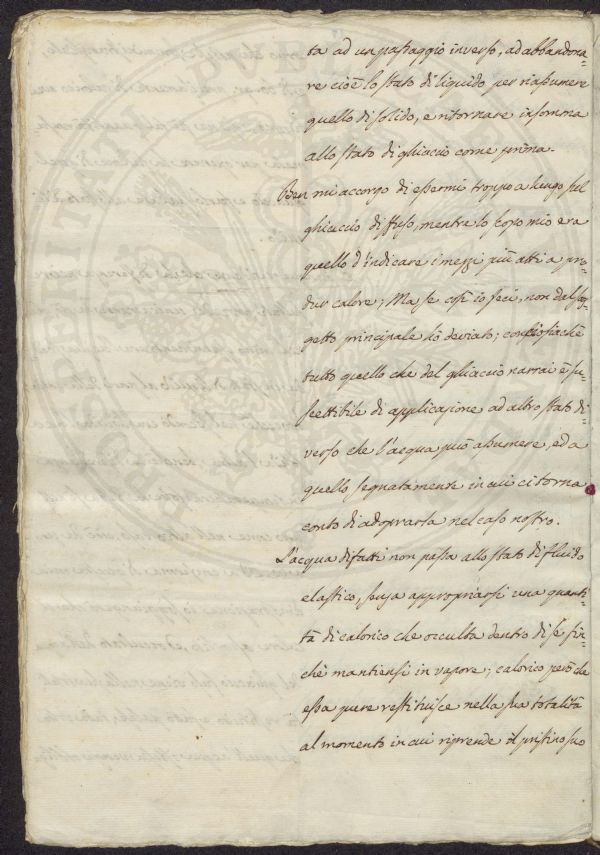 ta ad un passaggio inverso, ad abbandona-
re cioè lo stato di liquido per riassumere
quello di solido, e ritornare insomma
allo stato di ghiaccio come prima.
Ben mi accorgo di essermi troppo a lungo sul
ghiaccio diffuso, mentre lo scopo mio era
quello d'indicare i mezzi più atti a pro-
dur calore; Ma se così io feci, non dal sog-
getto principale hò deviato; conciosiachè
tutto quello che del ghiaccio narrai è su-
scettibile di applicazione ad altro stato di-
verso che l'acqua può assumere, ed a
quello segnatamente in cui ci torna
conto di adoprarla nel caso nostro.
L'acqua difatti non passa allo stato di fluido
elastico, senza appropriarsi una quanti-
tà di calorico che occulta dentro di se fin-
chè mantiensi in vapore; calorico però che
essa pure restituisce nella sua totalità
al momento in cui riprende il pristino suo
PROSPERITAT PUBL